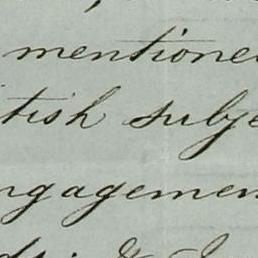 mentione
tish subje
ngagemen